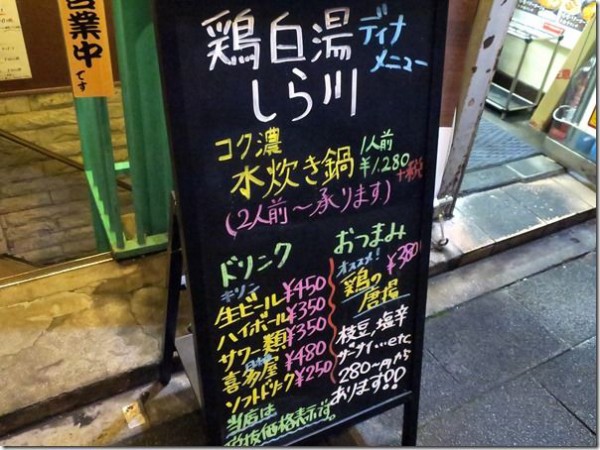 営業中
です
鶏白湯
しら川
ディナー
メニュー
コク濃
水炊き鍋
1人前
¥1,280
+税
(2人前〜承ります)
ドリンク
キリン
生ビール ¥450
ハイボール ¥350
サワー類 ¥350
日本酒
喜多屋 ¥480
ソフトドリンク ¥250
当店は
税抜価格表示です。
おつまみ
オススメ!
¥380
鶏の
唐揚
枝豆,塩辛
ザーサイ…etc
280〜円から
あります!!